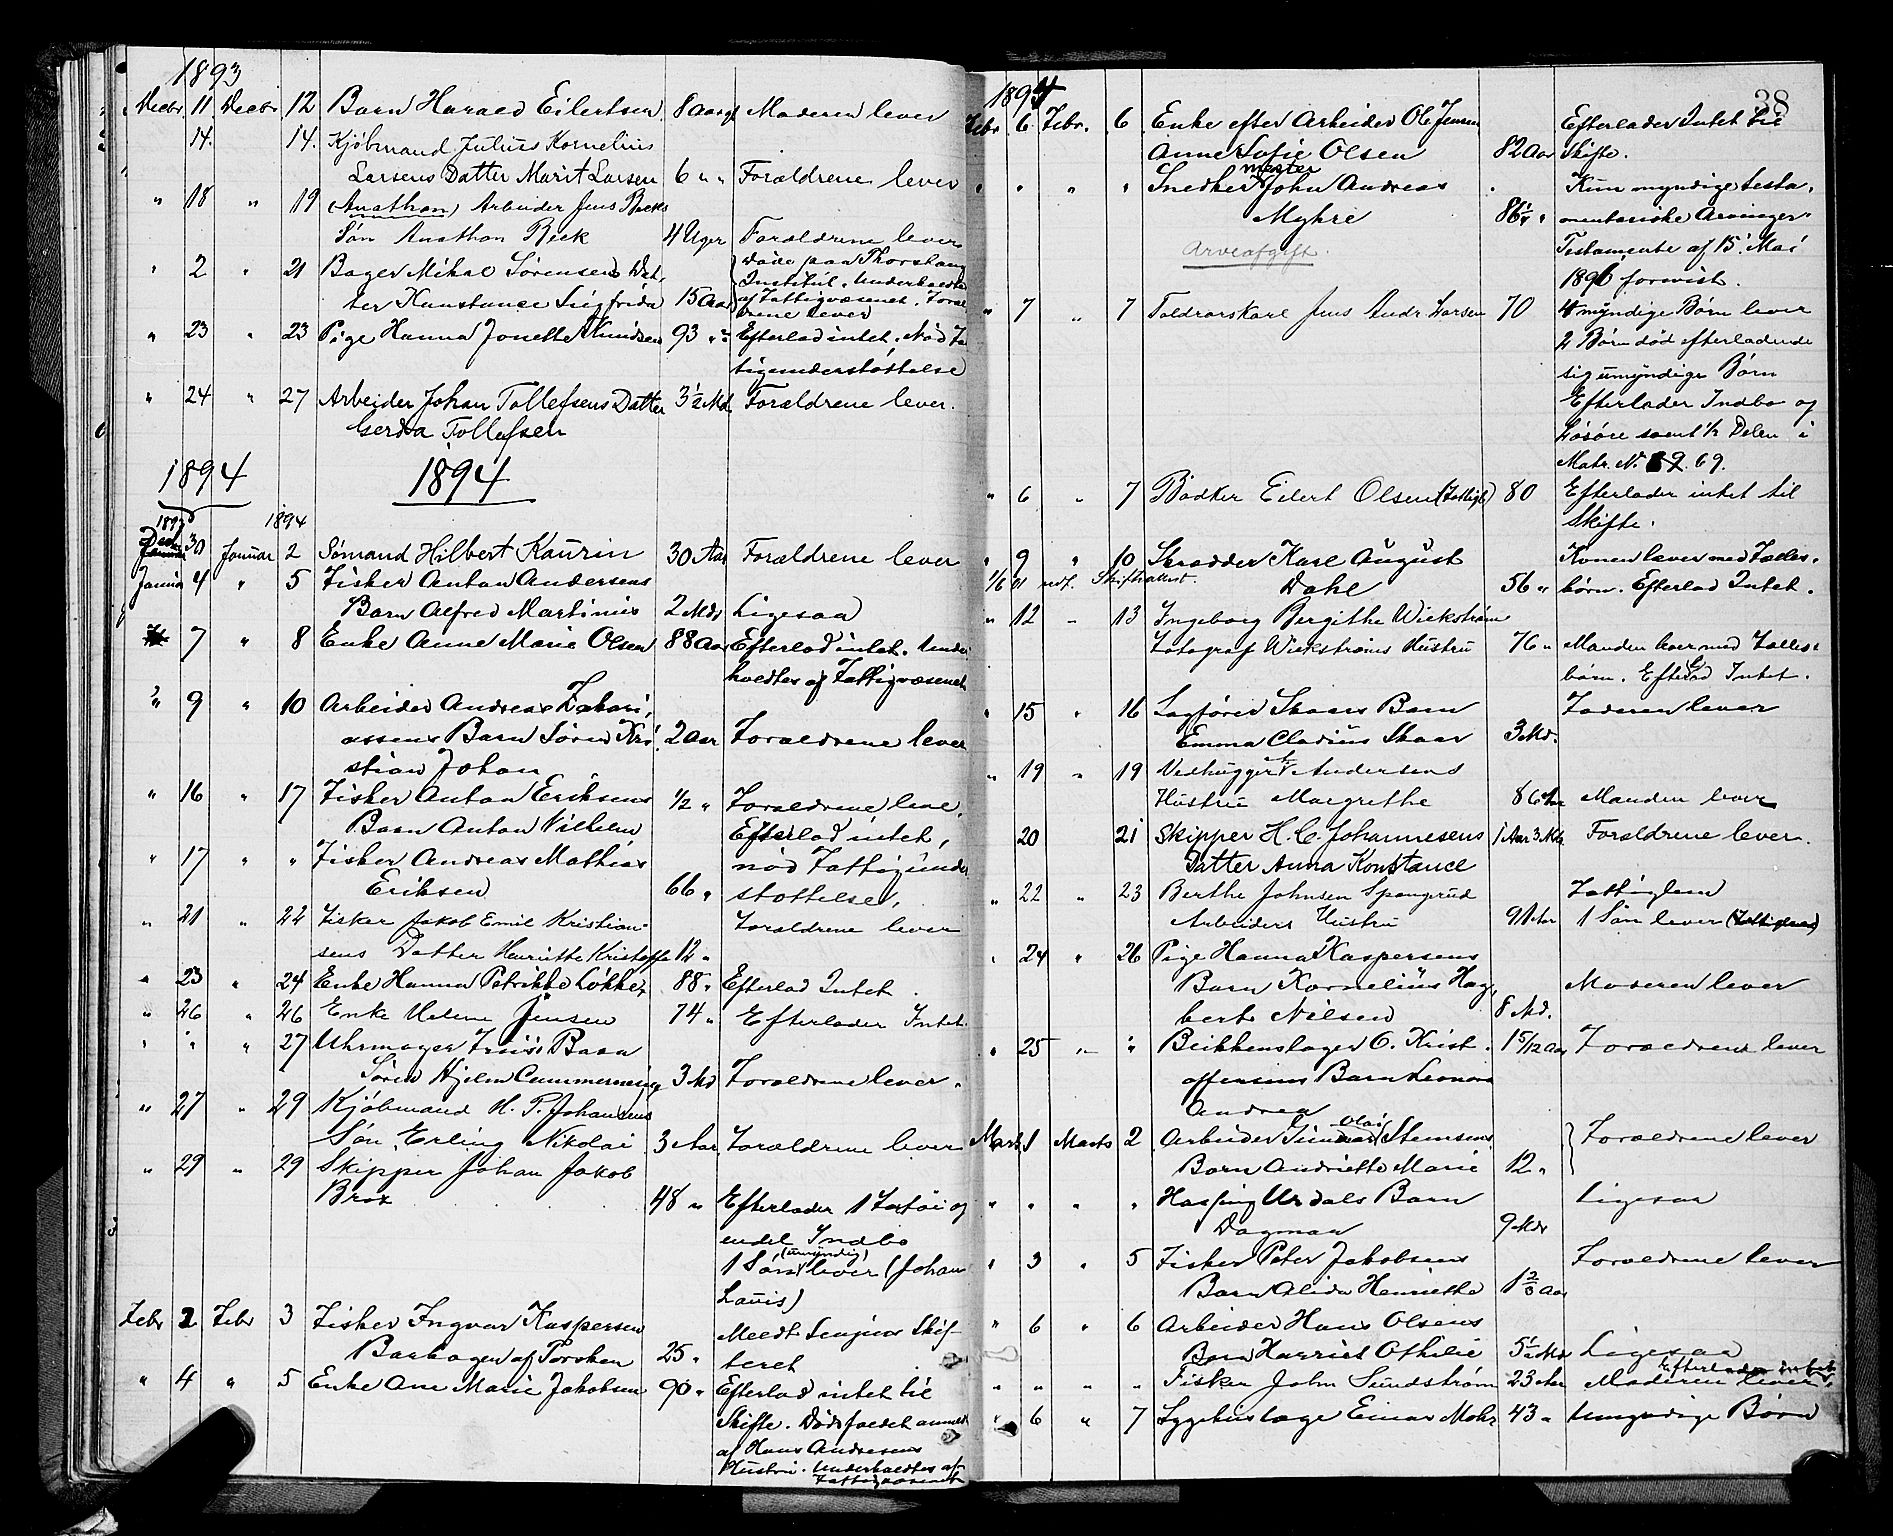 1893
Decbr 11 Decbr 12 Barn Harald Eilertsen 8 Aar gl Moderen lever
14. 14. Kjøbmand Julius Kornelius
Larsens Datter Marit Larsen 6 " " Forældrene lever
" 18 " 19 (Anathon) Arbeider Jens Becks
Søn Anathon Beck 4 Uger Forældrene lever
" 2 " 21 Bager Mikal Sørensens Dat- Døde paa Thorshaug
Institut. Underholdtes
ter Konstance Sigfrida 15 Aar af Fattigvæsenet. Foræl
drene lever
" 23 " 23 Pige Hanna Jonette Knudsen 93 " " Efterlod intet. Nød Fat
tigunderstøttelse
" 24 " 27 Arbeider Johan Tollefsens Datter 3 1/2 Md. Forældrene lever.
Gerda Tollefsen
1894 1894
1893 1894
Decbr 30 Januar 2 Sømand Hilbert Kaurin 30 Aar Forældrene lever
Januar 4 " 5 Fisker Anton Andersens
Barn Alfred Martinus 2 Mdr Ligesaa
7 " 8 Enke Anne Marie Olsen 88 Aar Efterlod intet. Under
holdtes af Fattigvæsenet
" 9 " 10 Arbeider Andreas Zakari-
assens Barn Søren Kri 2 Aar Forældrene lever
stian Johan
" 16 " 17 Fisker Anton Eriksens 1/2 " Forældrene leve.
Barn Anton Vilhelm Efterlod intet,
" 17 " " Fisker Andreas Mathias nød Fattigunder
Eriksen 66 " støttelse,
" 21 " 22 Fisker Jakob Emil Kristian- Forældrene lever
sens Datter Henriette Kristoffa 12 "
" 23 " 24 Enke Hanna Petrikke Løkke 88 " Efterlod Intet.
" 26 " 26 Enke Helene Jensen 74 " Efterlader Intet.
" " " 27 Uhrmager Friis Barn
Søren Hjelm Cummermeng 3 Md Forældrene lever.
" 27 " 29 Kjøbmand H. P. Johansens
Søn Erling Nikolai 3 Aar Forældrene lever
" 29 " 29 Skipper Johan Jakob
Brox 48 " Efterlader 1 Fartøi og
endel Indbo
(umyndig)
1 Søn lever (Johan
Lauis)
Febr 2 Febr 3 Fisker Ingvar Kaspersen Meldt Senjens Skif-
Barbogen af Torsken 25 " teret
" 4 " 5 Enke Ane Marie Jakobsen 90 " Efterlod intet til
Skifte. Dødsfaldet anmeldt
af Hans Andresens
Hustru. Underholdtes af
Fattigvæsenet
1894 38
Febr 6 Febr. 6 Enke efter Arbeider Ole Jensen Efterlader Intet til
Anne Sofie Olsen 82 Aar Skifte.
mester
" " " " Snedker John Andreas Kun myndige testa-
Myhre 86 1/4 " mentariske Arvinger
Arveafgift. Testamente af 15 Mai
1890 forevist.
" 7 " 7 Toldrorskarl Jens Andr Larsen 70 4 myndige Børn lever
2 Børn død efterladende
sig umyndige Børn
Efterlader Indbo og
Løsøre samt 1/2 Delen i
Matr. No. 69.
" 6 " 7 Bødker Eilert Olsen (Fattigl) 80 Efterlader intet til
Skifte.
" 9 " 10 Skrædder Karl August Konen lever med Fælles-
1/6 01 Skifteattest.
Dahl 56 " børn. Efterlod Intet.
" 12 " 13 Ingeborg Bergithe Wickstrøm
Fotograf Wickstrøms Hustru 76 " Manden lever med Fælles-
børn. Efterlod Intet.
" 15 " 16 Sagfører Skaars Barn Faderen lever
Emma Cladius Skaar 3 Md.
" 19 " 19 Vedhugger Andersens
Hustru Margrethe 86 Aar Manden lever
20 21 Skipper H. C. Johannesens 1 Aar 3 Mdr. Forældrene lever.
Datter Anna Konstance
" 22 " 23 Berthe Johnsen Spangrud Fattiglem
Arbeiders Hustru 91 Aar 1 Søn lever (Fattiglem)
" 24 " 26 Pige Hanna Kaspersens
Barn Kornelius Hag- Moderen lever
bert Nilsen 8 Md.
" 25 " " Blikkenslager O. Krist- 1 5/12 Aar Forældrene lever
offersens Barn Leonora
Andrea
Olai
Marts 1 Marts 2 Arbeider Stensens Forældrene lever
Barn Andriette Marie 12 "
" " " " Urdals Barn Ligesaa
Dagmar 9 Mdr
" 3 " 5 Fisker Peter Jakobsens Forældrene lever
Barn Alida Henriette 1 2/3 Aar
" 6 " 6 Arbeider Hans Olsens
Barn Harriet Othilie 5 1/2 Md Ligesaa
Efterlader intet
" " " " Fisker John Sundstrøm 23 Aar Moderen lever.
" 6 " 7 Sygehuslæge Einar Mohr 43 " Umyndige Børn